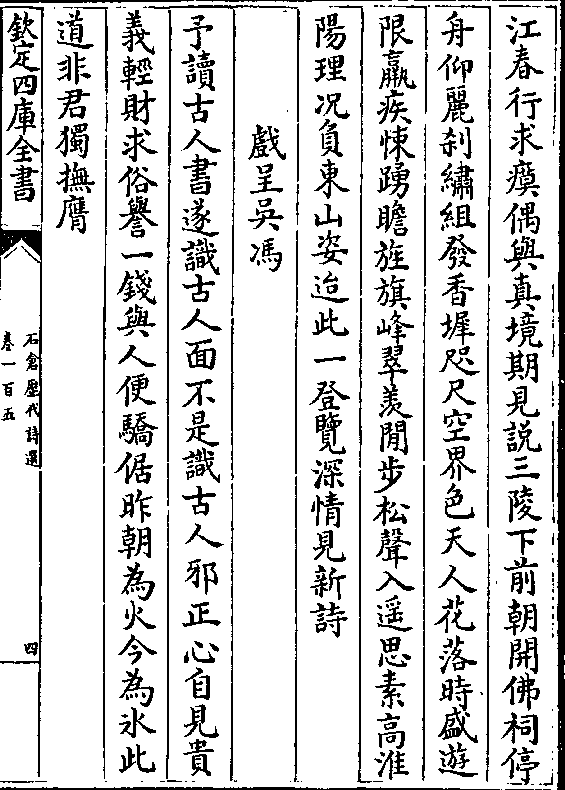 江春行求瘼偶與真境期見説三陵下前朝開佛祠停
舟仰麗刹繡組發香墀咫尺空界色天人花落時盛遊
限羸疾悚踴瞻旌旗峰翠羨閒步松聲入遥思素高淮
陽理况負東山姿迨此一登覽深情見新詩
戲呈吳馮
予讀古人書遂識古人面不是識古人邪正心自見貴
義輕財求俗譽一錢與人便驕倨昨朝為火今為氷此
道非君獨撫膺
欽定四庫全書
石倉歷代詩選
卷一百五
四